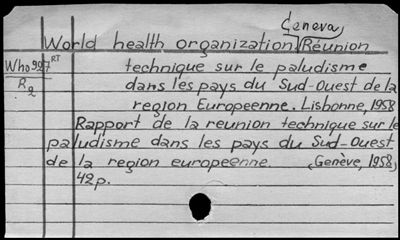 Geneva,
World health organization. Réunion
Who927RT technique sur le paludisme
R2 dans les pays du Sud-Ouest de la
region Europeenne. Lisbonne, 1958
Rapport de la reunion technique sur le
paludisme dans les pays du Sud-Ouest
de la region europeenne. (Genève, 1958)
42p.